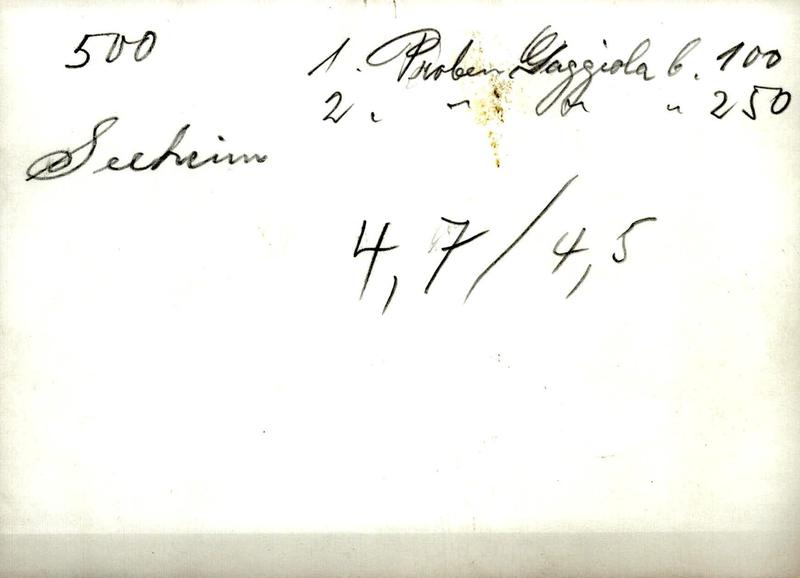 500
1. Proben Gaggiola b. 100
2. " " " 250
Seeheim
4,7/4,5